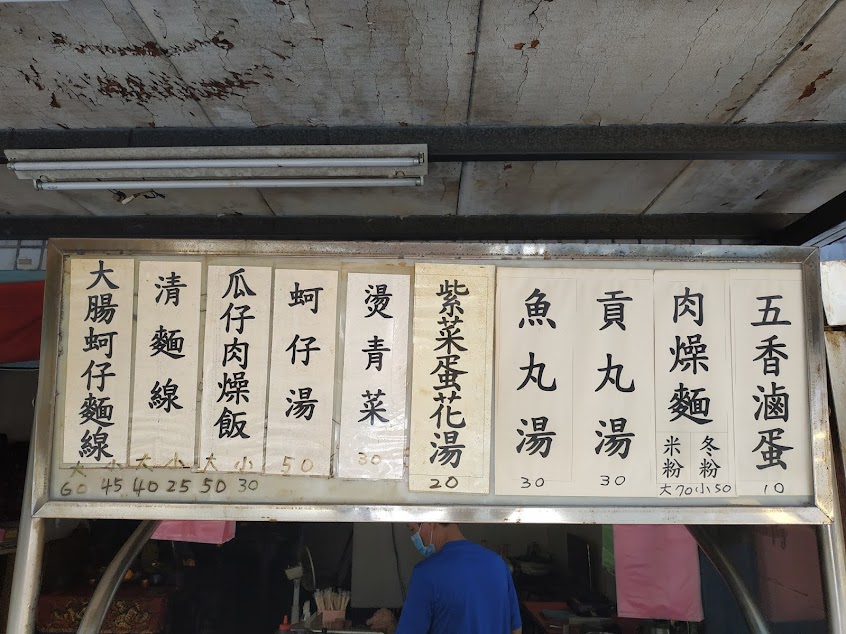 五香滷蛋
10
肉燥麵
冬粉
米粉
大70小50
貢丸湯
30
魚丸湯
30
紫菜蛋花湯
20
燙青菜
30
蚵仔湯
50
瓜仔肉燥飯
大 小
50 30
清麵線
大 小
40 25
大腸蚵仔麵線
大 小
60 45